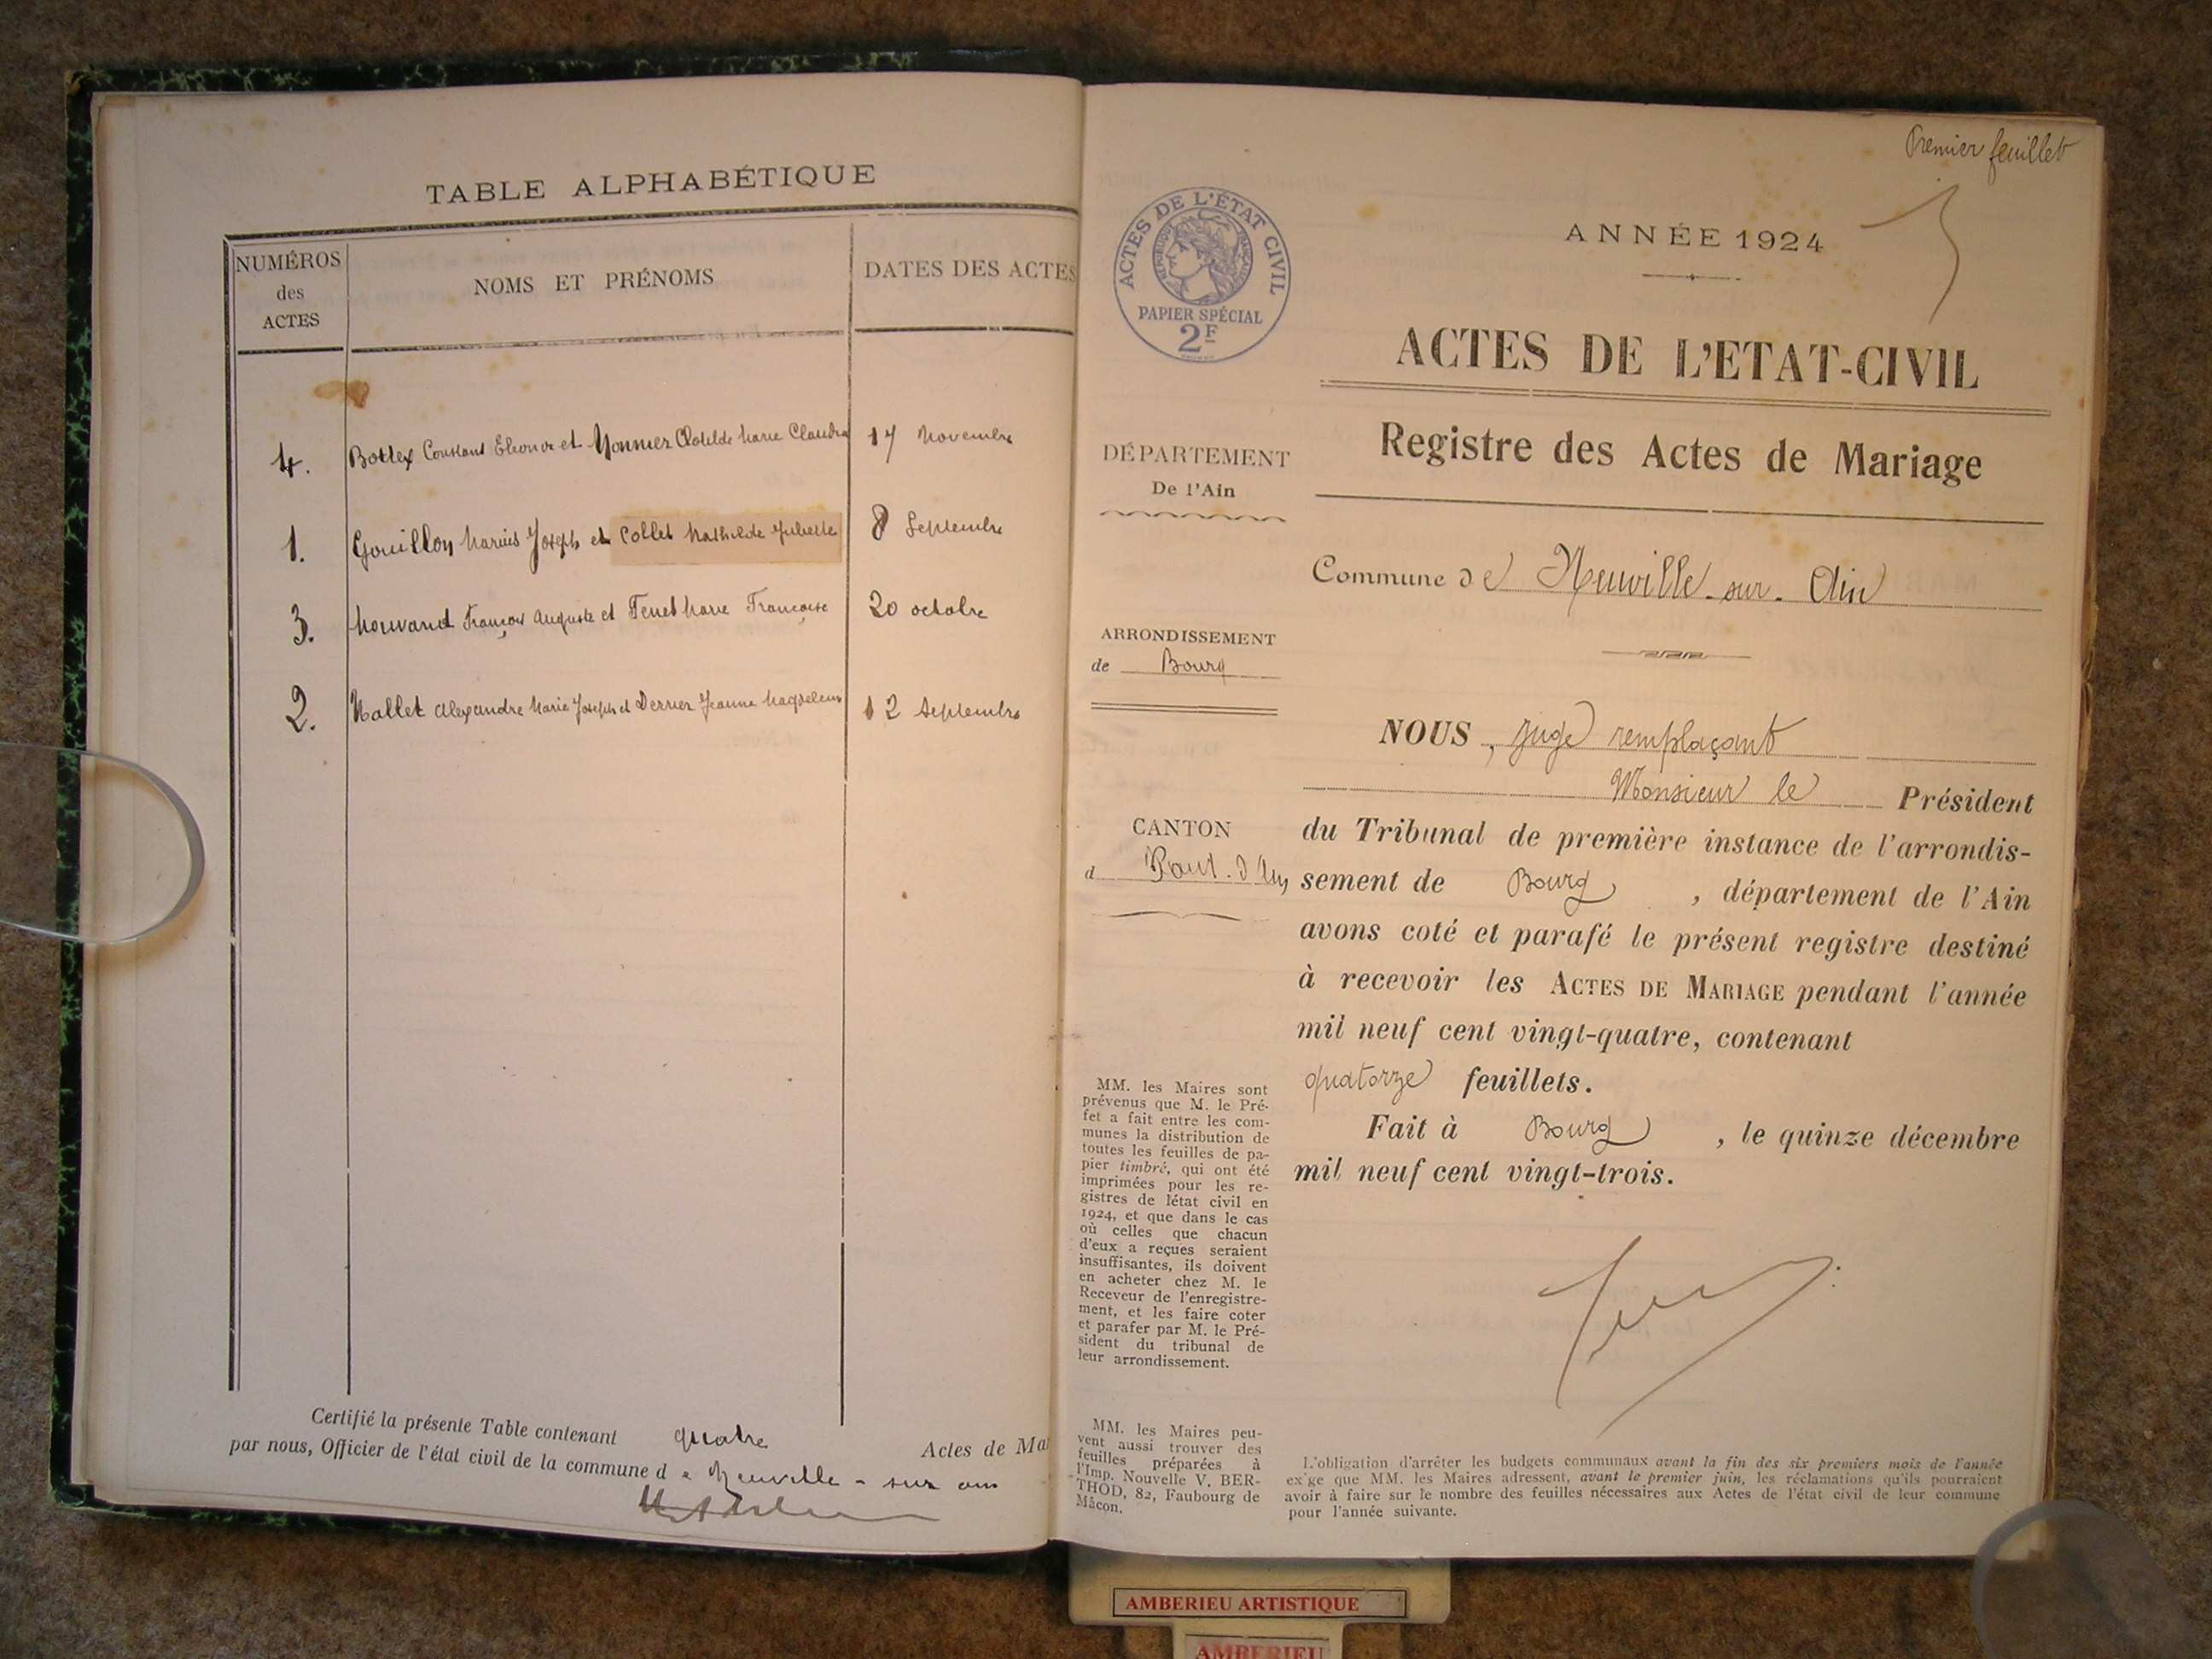 TABLE ALPHABÉTIQUE
NUMÉROS
des
ACTES
NOMS ET PRÉNOMS
DATES DES ACTES
4. Bottex Constant Eleonor et Monnier Clotilde Marie Claudia 17 Novembre
1. Gouillon Marius Joseph et Collet Mathilde Juliette 8 Septembre
3. François Auguste et Tenet Marie Françoise 20 octobre
2. Nallet Alexandre Marie Joseph et Derrier Jeanne 12 Septembre
Certifié la présente Table contenant quatre Actes de Ma
par nous, Officier de l'état civil de la commune d e Neuville - sur ain
Premier feuillet
ACTES DE L'ÉTAT CIVIL
RÉPUBLIQUE FRANÇAISE
PAPIER SPÉCIAL
2F
ANNÉE 1924
ACTES DE L'ETAT-CIVIL
Registre des Actes de Mariage
DÉPARTEMENT
De l'Ain
Commune de Neuville-sur-Ain
ARRONDISSEMENT
de Bourg
CANTON
d Pont-d'Ain
NOUS, juge remplaçant
Monsieur le Président
du Tribunal de première instance de l'arrondis-
sement de Bourg, département de l'Ain
avons coté et parafé le présent registre destiné
à recevoir les ACTES DE MARIAGE pendant l'année
mil neuf cent vingt-quatre, contenant
quatorze feuillets.
Fait à Bourg, le quinze décembre
mil neuf cent vingt-trois.
MM. les Maires sont
prévenus que M. le Pré-
fet a fait entre les com-
munes la distribution de
toutes les feuilles de pa-
pier timbré, qui ont été
imprimées pour les re-
gistres de létat civil en
1924, et que dans le cas
où celles que chacun
d'eux a reçues seraient
insuffisantes, ils doivent
en acheter chez M. le
Receveur de l'enregistre-
ment, et les faire coter
et parafer par M. le Pré-
sident du tribunal de
leur arrondissement.
MM. les Maires peu-
vent aussi trouver des
feuilles préparées à
l'Imp. Nouvelle V. BER-
THOD, 82, Faubourg de
Mâcon.
L'obligation d'arrêter les budgets communaux avant la fin des six premiers mois de l'année
ex'ge que MM. les Maires adressent, avant le premier juin, les réclamations qu'ils pourraient
avoir à faire sur le nombre des feuilles nécessaires aux Actes de l'état civil de leur commune
pour l'année suivante.
AMBERIEU ARTISTIQUE
AMBERIEU